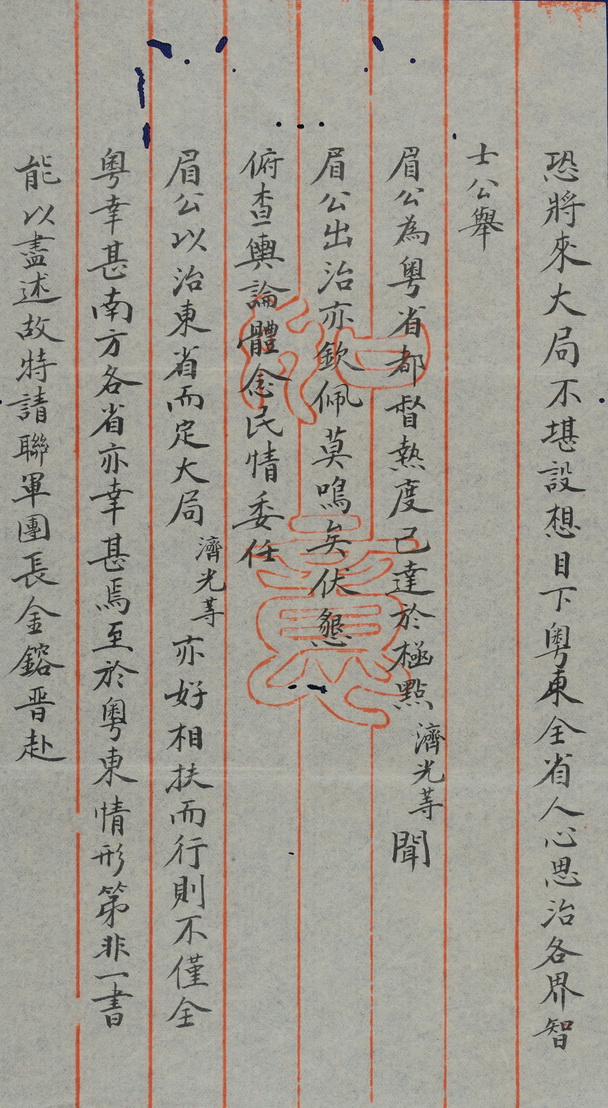 恐將來大局不堪設想目下粵東全省人心思治各界智
士公舉
眉公為粵省都督熱度已達於極點濟光等聞
眉公出治亦欽佩莫鳴矣伏懇
俯查輿論體念民情委任
眉公以治東省而定大局濟光等亦好相扶而行則不僅全
粵幸甚南方各省亦幸甚焉至於粵東情形第非一書
能以盡述故特請聯軍團長金鎔晋赴